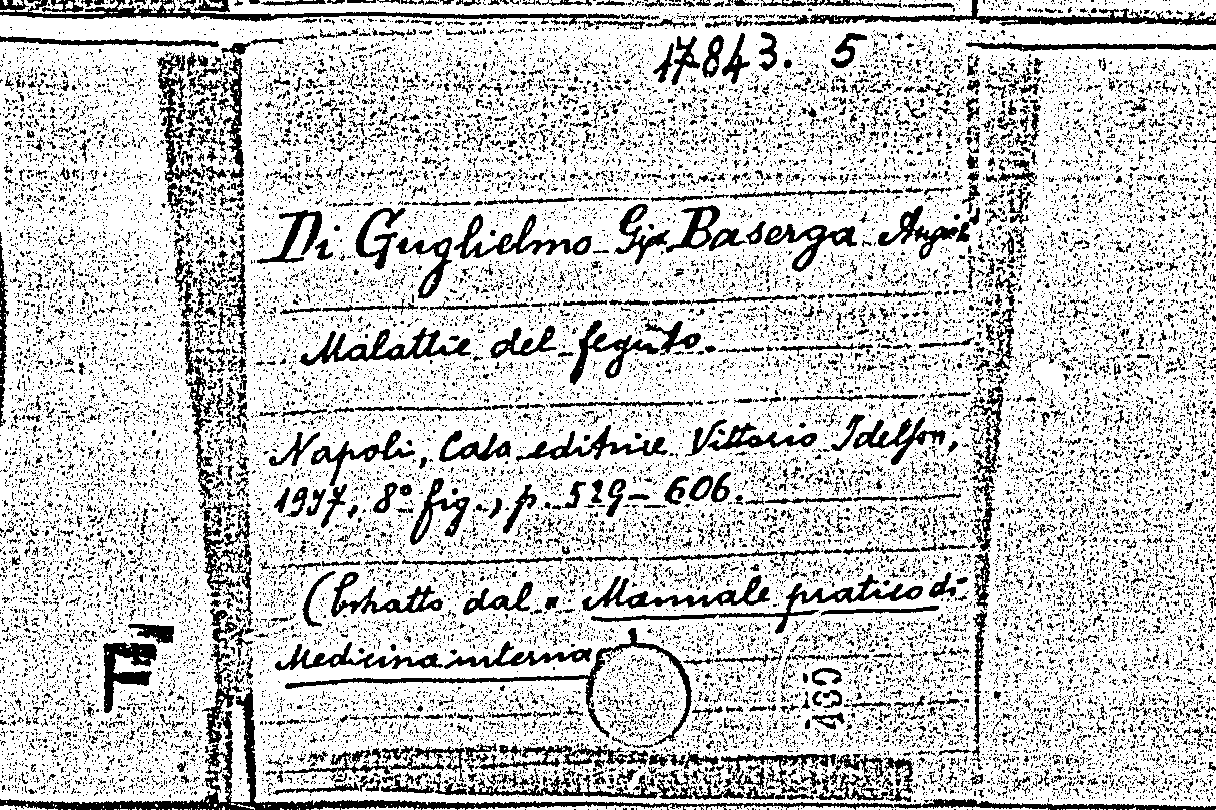 17843. 5
Di Guglielmo G. e Baserga Angelo
Malattie del fegato.
Napoli, Casa editrice Vittorio Idelson,
1937, 8° fig., p. 529-606.
(Estratto dal "Manuale pratico di
Medicina interna
F
489